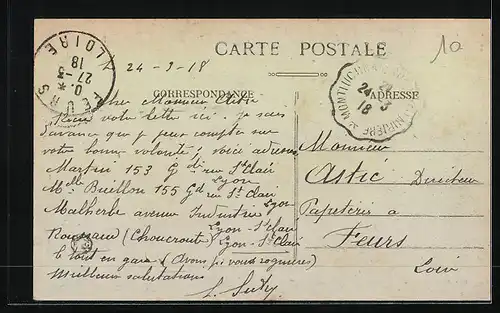 CARTE POSTALE
10
24-3-18
CORRESPONDANCE
ADRESSE
FEURS
LOIRE
27-3
18
24 3
18
Cher Monsieur Astic
votre lettre ici. je sais
d'avance que je peux compter sur
votre bonne volonté; voici adresses
Martin 153 Gde rue St Clair
Lyon
Melle Buillon 155 Gd rue St Clair
Lyon
Malherbe avenue Industrie
Lyon - St Clair
Rousseau (Choucroute) Lyon - St Clair
le tout en gare (Avons pi vous rogneures)
Meilleures salutations
Monsieur
Astic Directeur
Papeterie a
Feurs
Loire